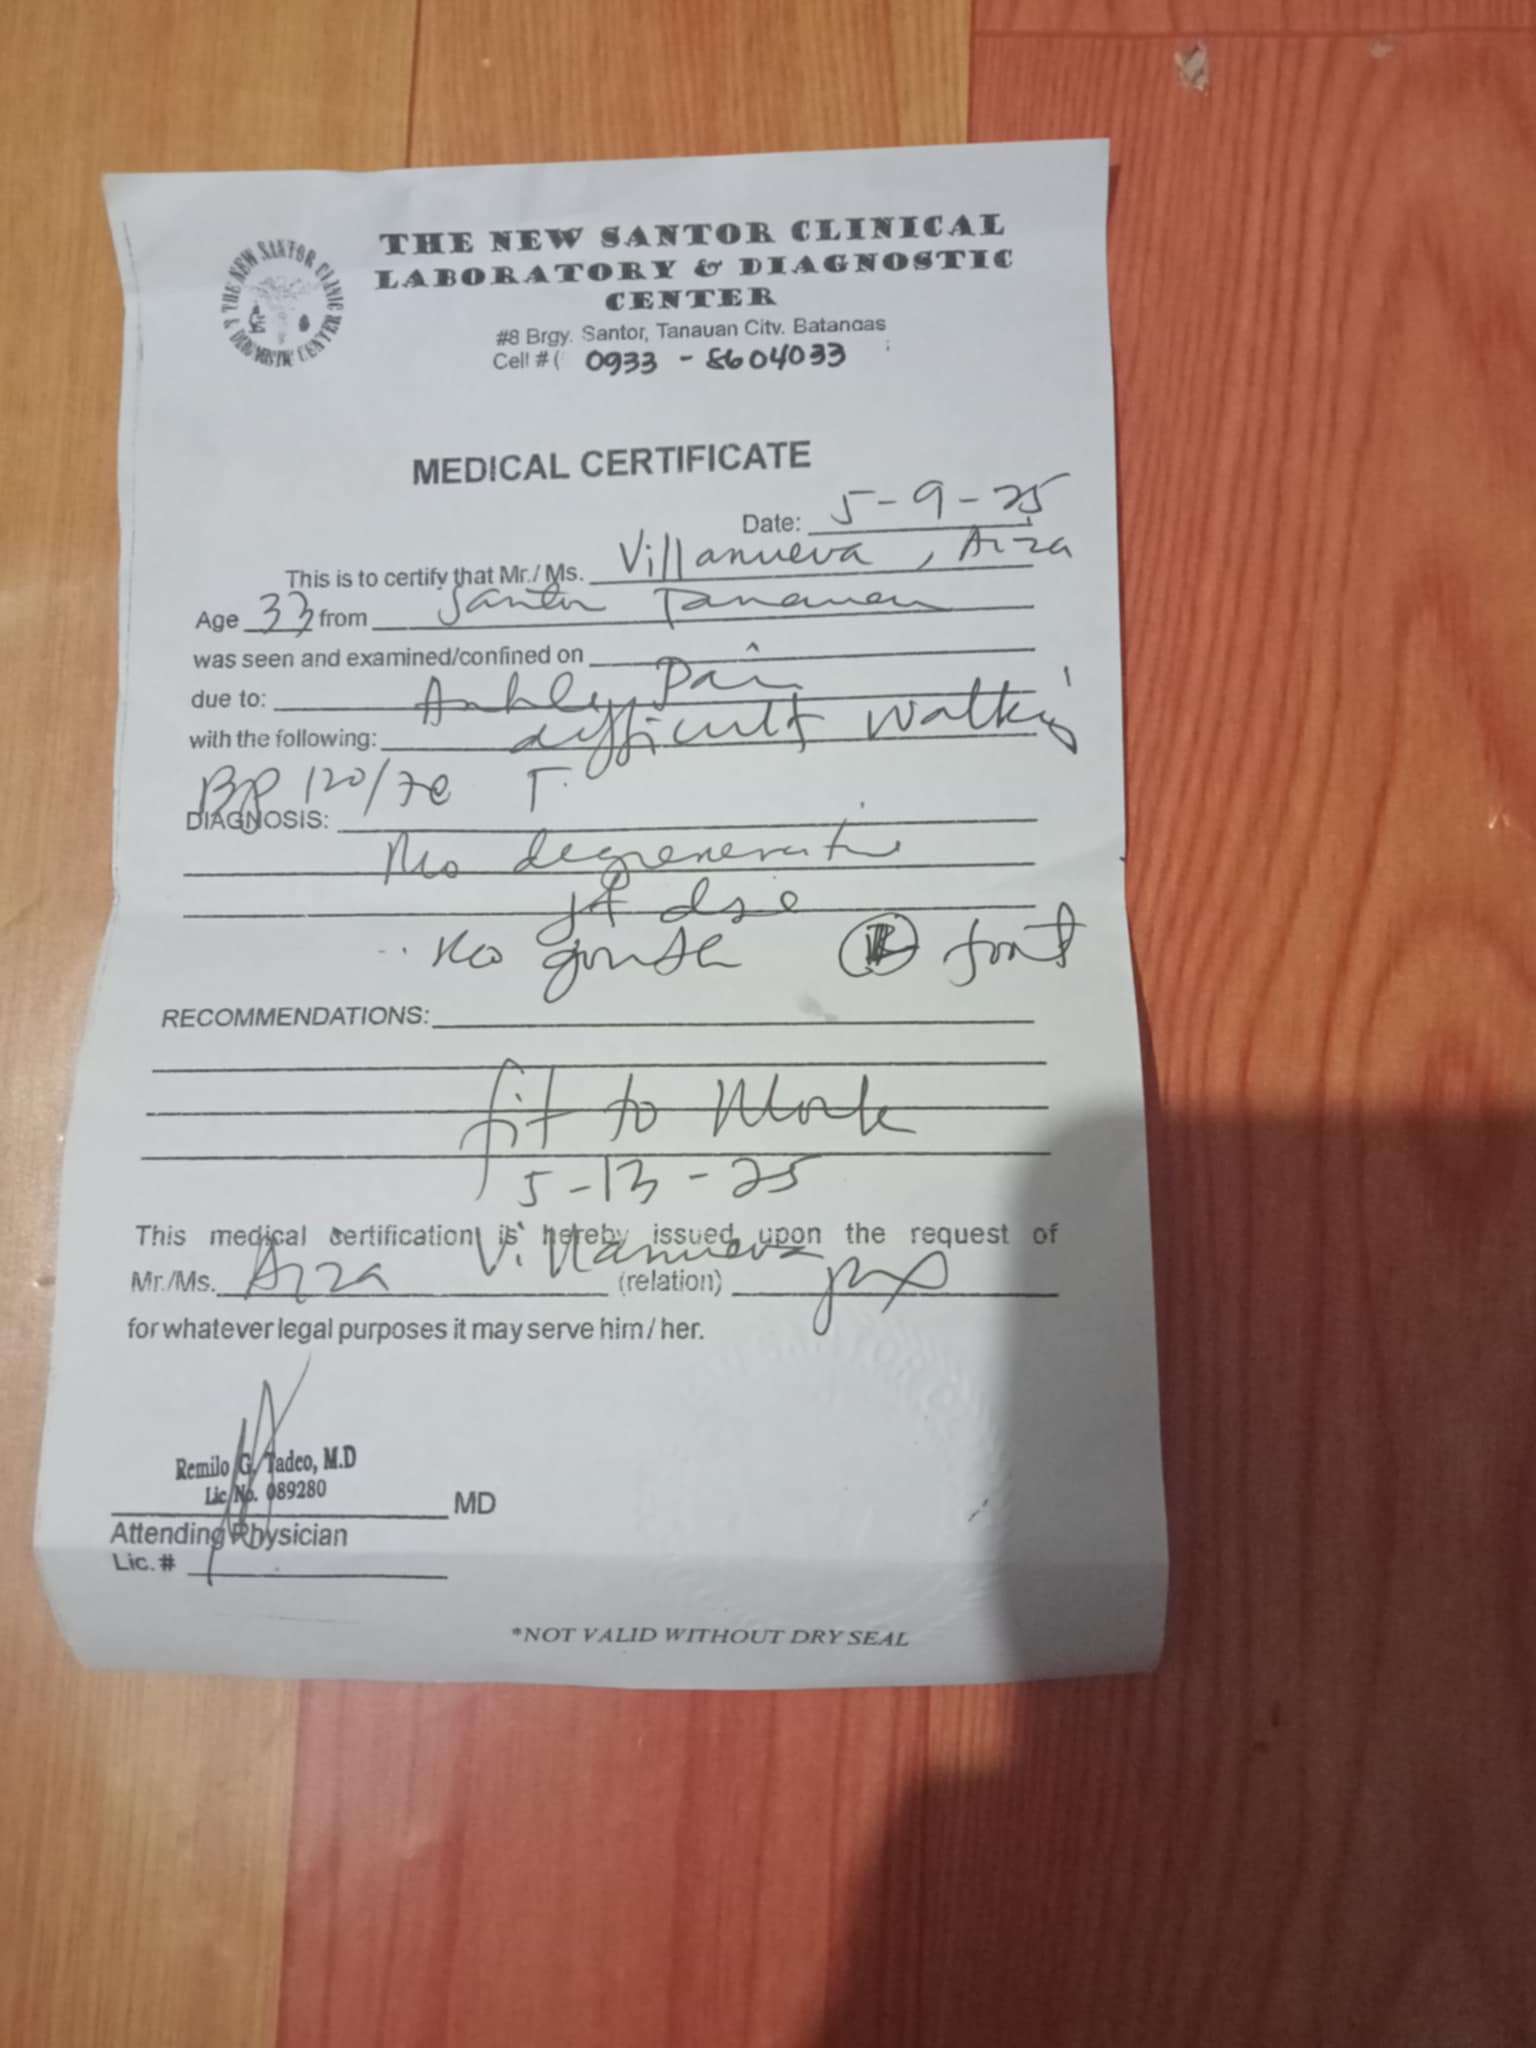 THE NEW SANTOR CLINIC & DIAGNOSTIC CENTER
THE NEW SANTOR CLINICAL
LABORATORY & DIAGNOSTIC
CENTER
#8 Brgy. Santor, Tanauan City. Batangas
Cell # ( 0933 - 8604033
MEDICAL CERTIFICATE
Date: 5-9-25
This is to certify that Mr./ Ms. Villanueva, Aiza
Age 33 from Santor Tanauan
was seen and examined/confined on
due to: Ankle Pain
with the following: difficult walking
BP 120/70 T.
DIAGNOSIS:
degenerative
jt dse
foot
RECOMMENDATIONS:
fit to Work
5-13-25
This medical certification is hereby issued upon the request of
Mr./Ms. Aiza Villanueva (relation)
for whatever legal purposes it may serve him / her.
Remilo G. Tadeo, M.D
Lic No. 089280
MD
Attending Physician
Lic. #
*NOT VALID WITHOUT DRY SEAL